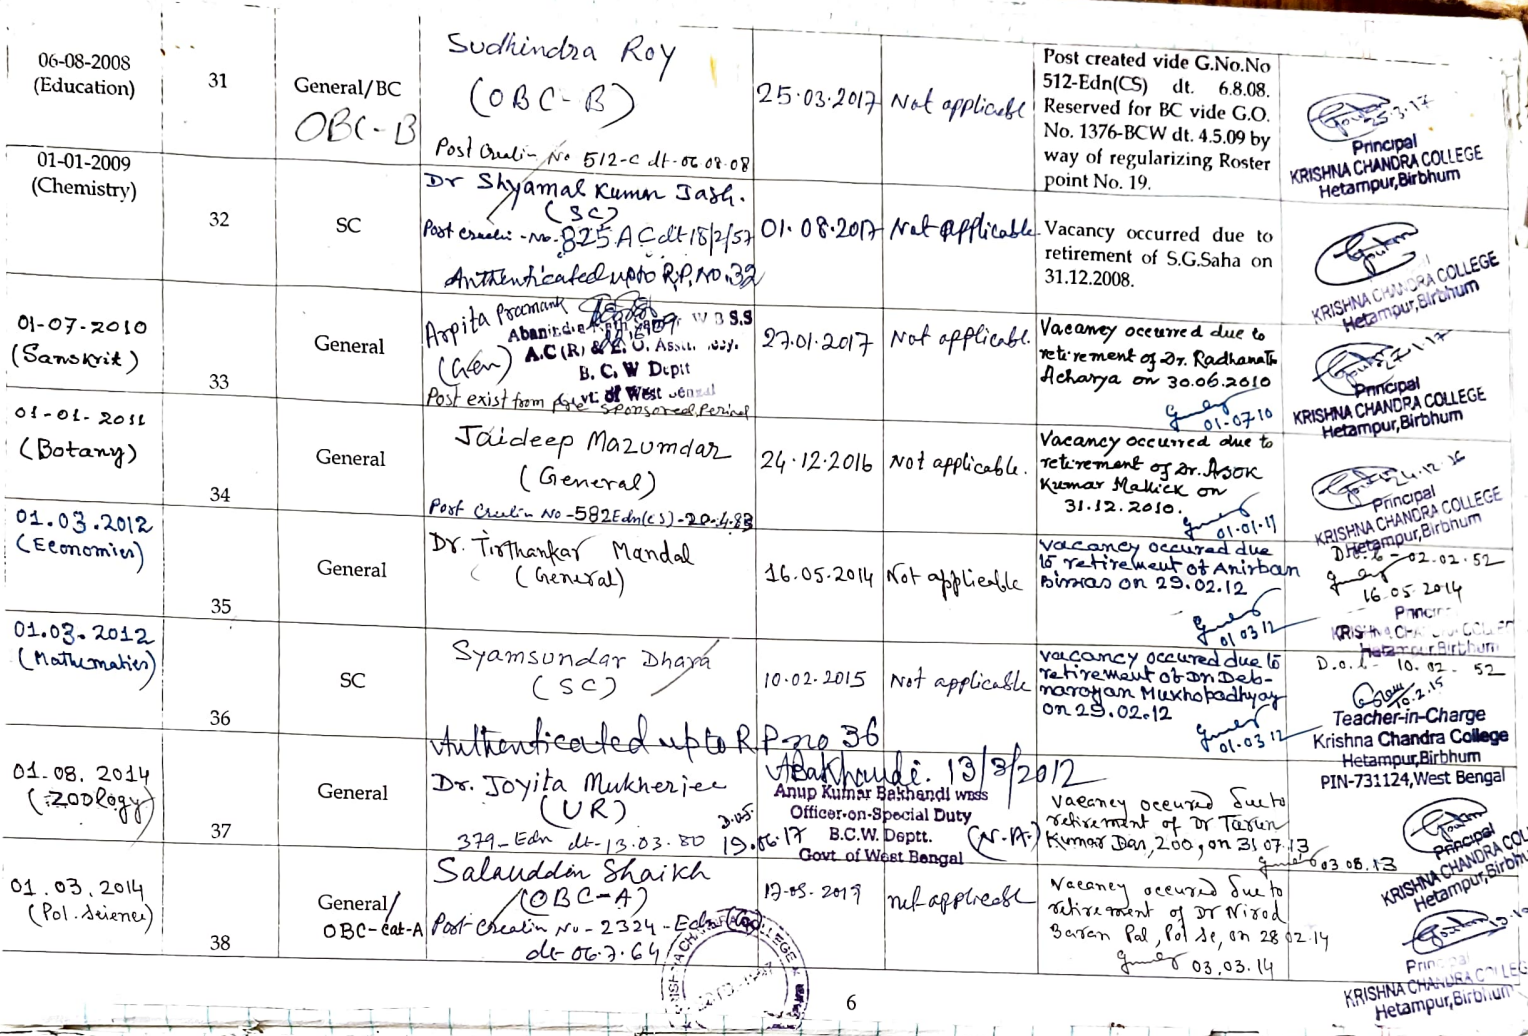 06-08-2008
(Education)
31
General/BC
OBC-B
Sudhindra Roy
(OBC-B)
Post Creation No 512-C dt-06 08-08
25.03.2017
Not applicable
Post created vide G.No.No
512-Edn(CS) dt. 6.8.08.
Reserved for BC vide G.O.
No. 1376-BCW dt. 4.5.09 by
way of regularizing Roster
point No. 19.
25-3-17
Principal
KRISHNA CHANDRA COLLEGE
Hetampur,Birbhum
01-01-2009
(Chemistry)
32
SC
Dr Shyamal Kumar Jash.
(SC)
Post creation-No-825 A C dt 18/2/57
Authenticated upto R.P. No. 32
01.08.2017
Not applicable
Vacancy occurred due to
retirement of S.G.Saha on
31.12.2008.
KRISHNA CHANDRA COLLEGE
Hetampur,Birbhum
01-07-2010
(Sanskrit)
33
General
Arpita Pramanik
(Gen)
W B S.S
A.C (R) & E. O. Asstt.
B. C. W Deptt
Govt. of West Bengal
Post exist from pre sponsored Period
27.01.2017
Not applicable.
Vacancy occurred due to
retirement of Dr. Radhanath
Acharya on 30.06.2010
01-07-10
27-1-17
Principal
KRISHNA CHANDRA COLLEGE
Hetampur,Birbhum
01-01-2011
(Botany)
34
General
Jaideep Mazumdar
(General)
Post Creation No -582Edn(CS)-20-4-83
24.12.2016
Not applicable.
Vacancy occurred due to
retirement of Dr. Asok
Kumar Mallick on
31.12.2010.
01-01-11
24.12.16
Principal
KRISHNA CHANDRA COLLEGE
Hetampur,Birbhum
01.03.2012
(Economics)
35
General
Dr. Tirthankar Mandal
(General)
16.05.2014
Not applicable
Vacancy occured due
to retirement of Anirban
Biswas on 29.02.12
01 03 12
02.02.52
16.05.2014
KRISHNA CHANDRA COLLEGE
Hetampur,Birbhum
01.03.2012
(Mathematics)
36
SC
Syamsundar Dhara
(SC)
10.02.2015
Not applicable
Vacancy occured due to
retirement of Dr Deb-
narayan Mukhopadhyay
on 29.02.12
01.03 12
10. 02. 52
10.2.15
Teacher-in-Charge
Krishna Chandra College
Hetampur,Birbhum
PIN-731124,West Bengal
Authenticated up to R.P no 36
ABakhandi. 13/3/2012
Anup Kumar Bakhandi WBSS
Officer-on-Special Duty
B.C.W. Deptt.
Govt. of West Bengal
01.08.2014
(Zoology)
37
General
Dr. Joyita Mukherjee
(UR)
379-Edn dt-13.03.80
19.06.17
(N.A.)
Vacancy occured due to
retirement of Dr Tarun
Kumar Das, Zoo, on 31 07.13
03.08.13
Principal
KRISHNA CHANDRA COLLEGE
Hetampur,Birbhum
01.03.2014
(Pol. Science)
38
General/
OBC-cat-A
Salauddin Shaikh
(OBC-A)
Post Creation No-2324-Edn
dt-06.7.64
not applicable
Vacancy occured due to
retirement of Dr Nirod
Baran Pal, Pol Sc, on 28 02.14
03.03.14
Principal
KRISHNA CHANDRA COLLEGE
Hetampur,Birbhum
6